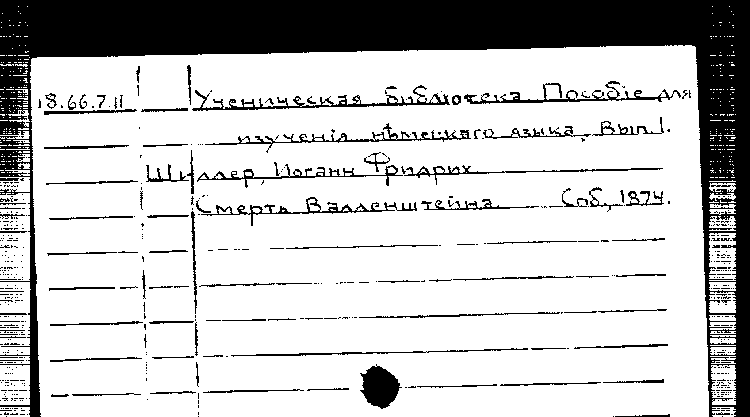 18.66.7.11 Ученическая библіотека. Пособіе для
изученія нѣмецкаго языка. Вып. 1.
Шиллер, Иоганн Фридрих
Смерть Валленштейна. Спб., 1874.